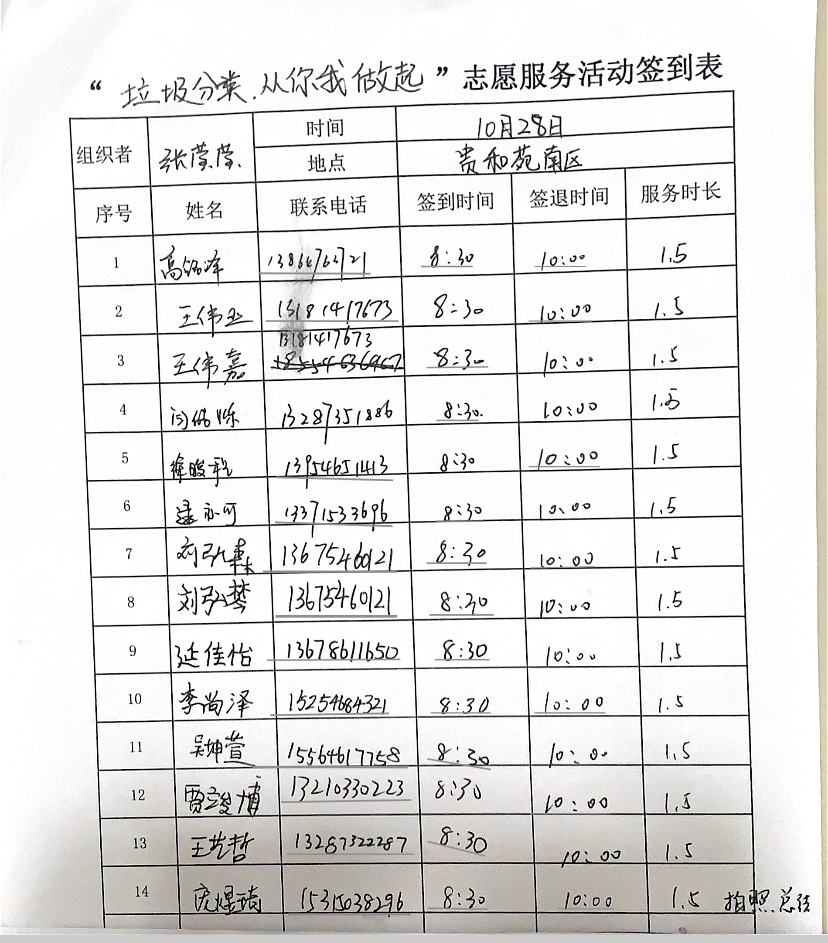 “垃圾分类.从你我做起”志愿服务活动签到表
组织者 张莹莹 时间 10月28日
地点 贵和苑南区
序号 姓名 联系电话 签到时间 签退时间 服务时长
1 高铭峰 8:30 10:00 1.5
2 王伟 13181417673 8:30 10:00 1.5
13181417673
3 王伟嘉 8:30 10:00 1.5
4 13287351886 8:30. 10:00 1.5
5 徐晙 13954651413 8:30 10:00 1.5
6 亦可 13371533696 8:30 10:00 1.5
7 刘弘森 13675460121 8:30 10:00 1.5
8 刘弘梦 13675460121 8:30 10:00 1.5
9 延佳怡 13678611650 8:30 10:00 1.5
10 李尚泽 15254684321 8:30 10:00 1.5
11 吴坤萱 15564617758 8:30 10:00 1.5
12 贾浚博 13210330223 8:30 10:00 1.5
13 王艺哲 13287322287 8:30 10:00 1.5
14 庞煜琦 15315038296 8:30 10:00 1.5 拍照.总结